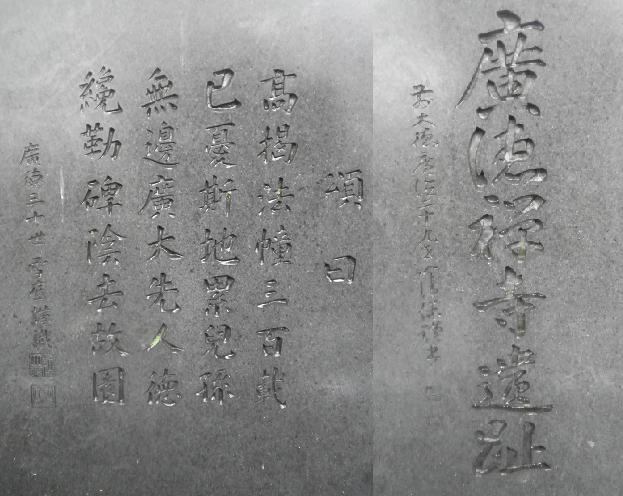 廣德禪寺遺趾
前大德廣德二十九世
頌曰
高揭法幢三百載
已憂斯地累兒孫
無邊廣大先人德
纔勒碑陰去故園
廣德三十世